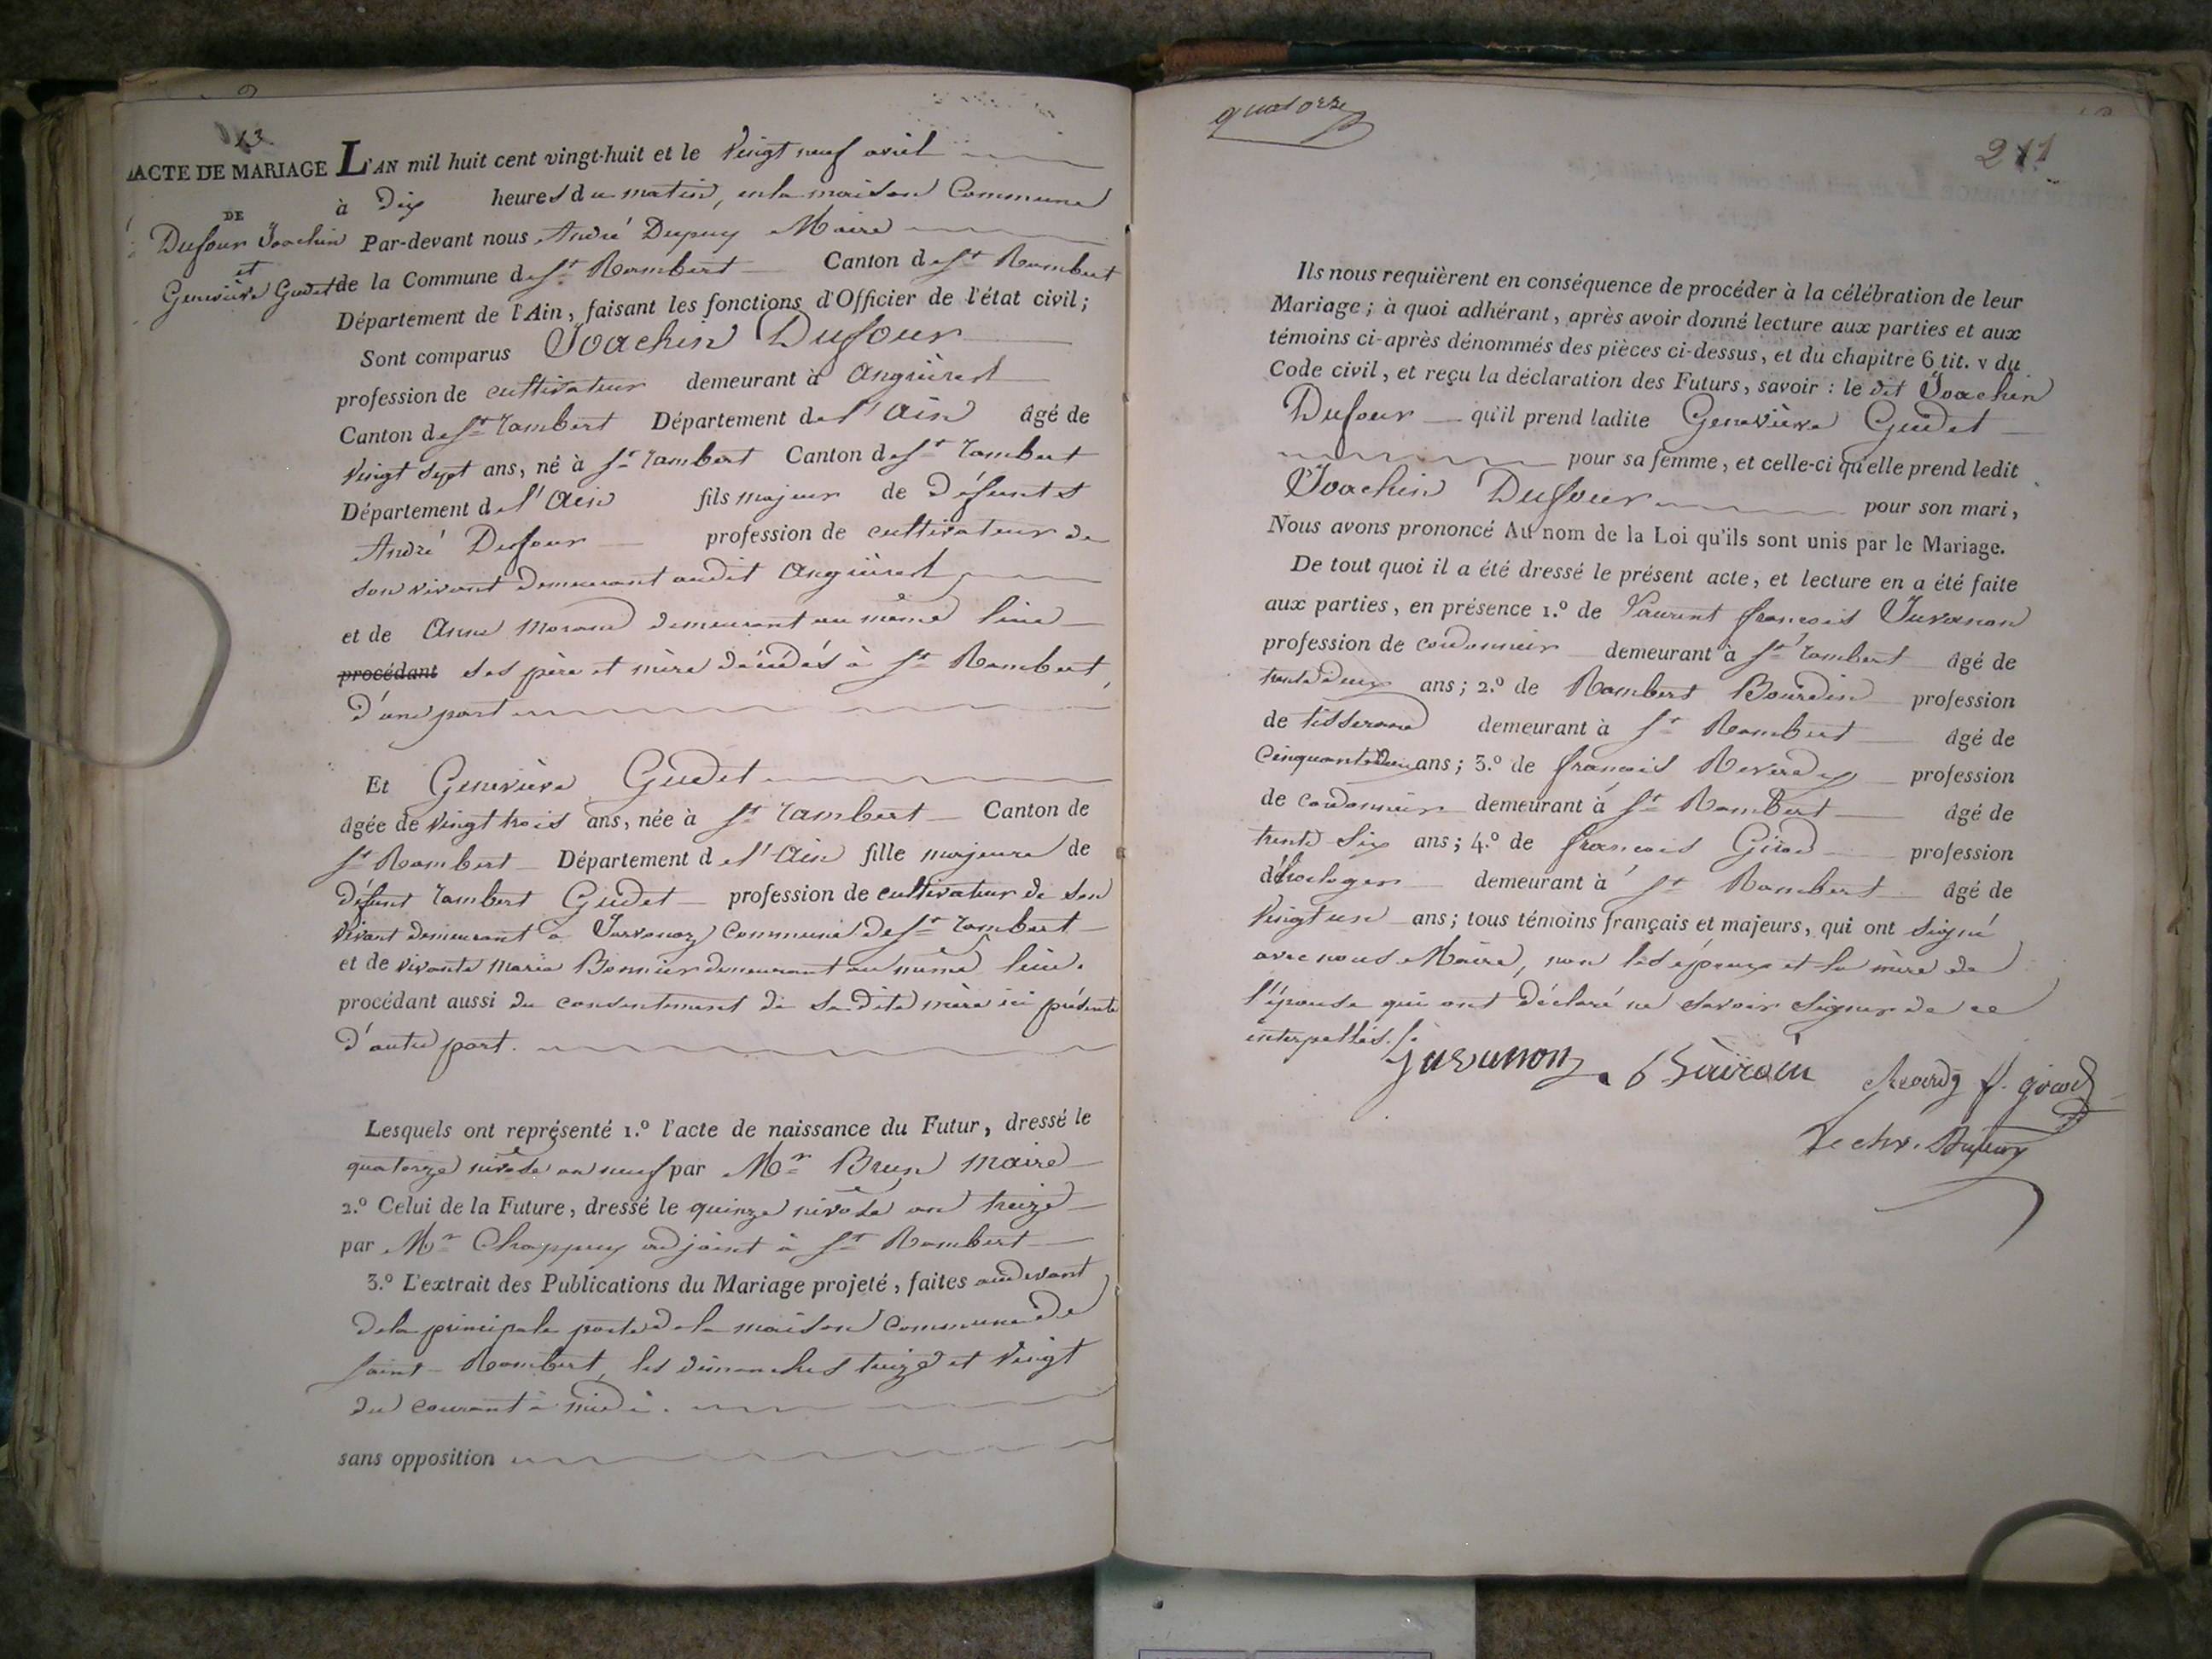 13
ACTE DE MARIAGE
DE
Dufour Joachin
et
Geneviève Gudet
L'AN mil huit cent vingt-huit et le Vingt neuf avril
à Dix heures du matin, en la maison Commune
Par-devant nous André Dupuy Maire
de la Commune de St Rambert Canton de St Rambert
Département de l'Ain, faisant les fonctions d'Officier de l'état civil;
Sont comparus Joachin Dufour
profession de cultivateur demeurant à Angrières
Canton de St rambert Département de l'Ain âgé de
Vingt sept ans, né à St rambert Canton de St rambert
Département de l'Ain fils majeur de Défunts
André Dufour profession de cultivateur de
son vivant demeurant audit Angrières
et de Anne Morand demeurant au même lieu
procédant ses père et mère décédés à St Rambert,
d'une part
Et Geneviève Gudet
âgée de vingt trois ans, née à St rambert Canton de
St Rambert Département de l'Ain fille majeure de
défunt rambert Gudet profession de cultivateur de son
vivant demeurant à Commune de St rambert
et de vivante Marie Bonnier demeurant au même lieu.
procédant aussi du consentement de sadite mère ici présente
d'autre part.
Lesquels ont représenté 1.º l'acte de naissance du Futur, dressé le
quatorze nivôse an neuf par Mr Brun Maire
2.º Celui de la Future, dressé le quinze nivôse an treize
par Mr Chappuy adjoint à St Rambert
3.º L'extrait des Publications du Mariage projeté, faites audevant
de la principale porte de la maison Commune de
Saint-Rambert, les dimanches treize et vingt
du courant à midi.
sans opposition
quatorze
211
Ils nous requièrent en conséquence de procéder à la célébration de leur
Mariage; à quoi adhérant, après avoir donné lecture aux parties et aux
témoins ci-après dénommés des pièces ci-dessus, et du chapitre 6 tit. v du
Code civil, et reçu la déclaration des Futurs, savoir: le dit Joachin
Dufour qu'il prend ladite Geneviève Gudet
pour sa femme, et celle-ci qu'elle prend ledit
Joachin Dufour pour son mari,
Nous avons prononcé Au nom de la Loi qu'ils sont unis par le Mariage.
De tout quoi il a été dressé le présent acte, et lecture en a été faite
aux parties, en présence 1.º de Laurent françois Juvanon
profession de cordonnier demeurant à St rambert âgé de
trente deux ans; 2.º de Rambert Bourdin profession
de tisserand demeurant à St Rambert âgé de
Cinquante deux ans; 3.º de françois Reverdy profession
de cordonnier demeurant à St Rambert âgé de
trente six ans; 4.º de françois Girod profession
d'horloger demeurant à St Rambert âgé de
Vingt un ans; tous témoins français et majeurs, qui ont signé
avec nous Maire, non les époux et la mère de
l'épouse qui ont déclaré ne savoir signer de ce
interpellés.
Juvanon Reverdy f. girod
Le chr. Dupuy